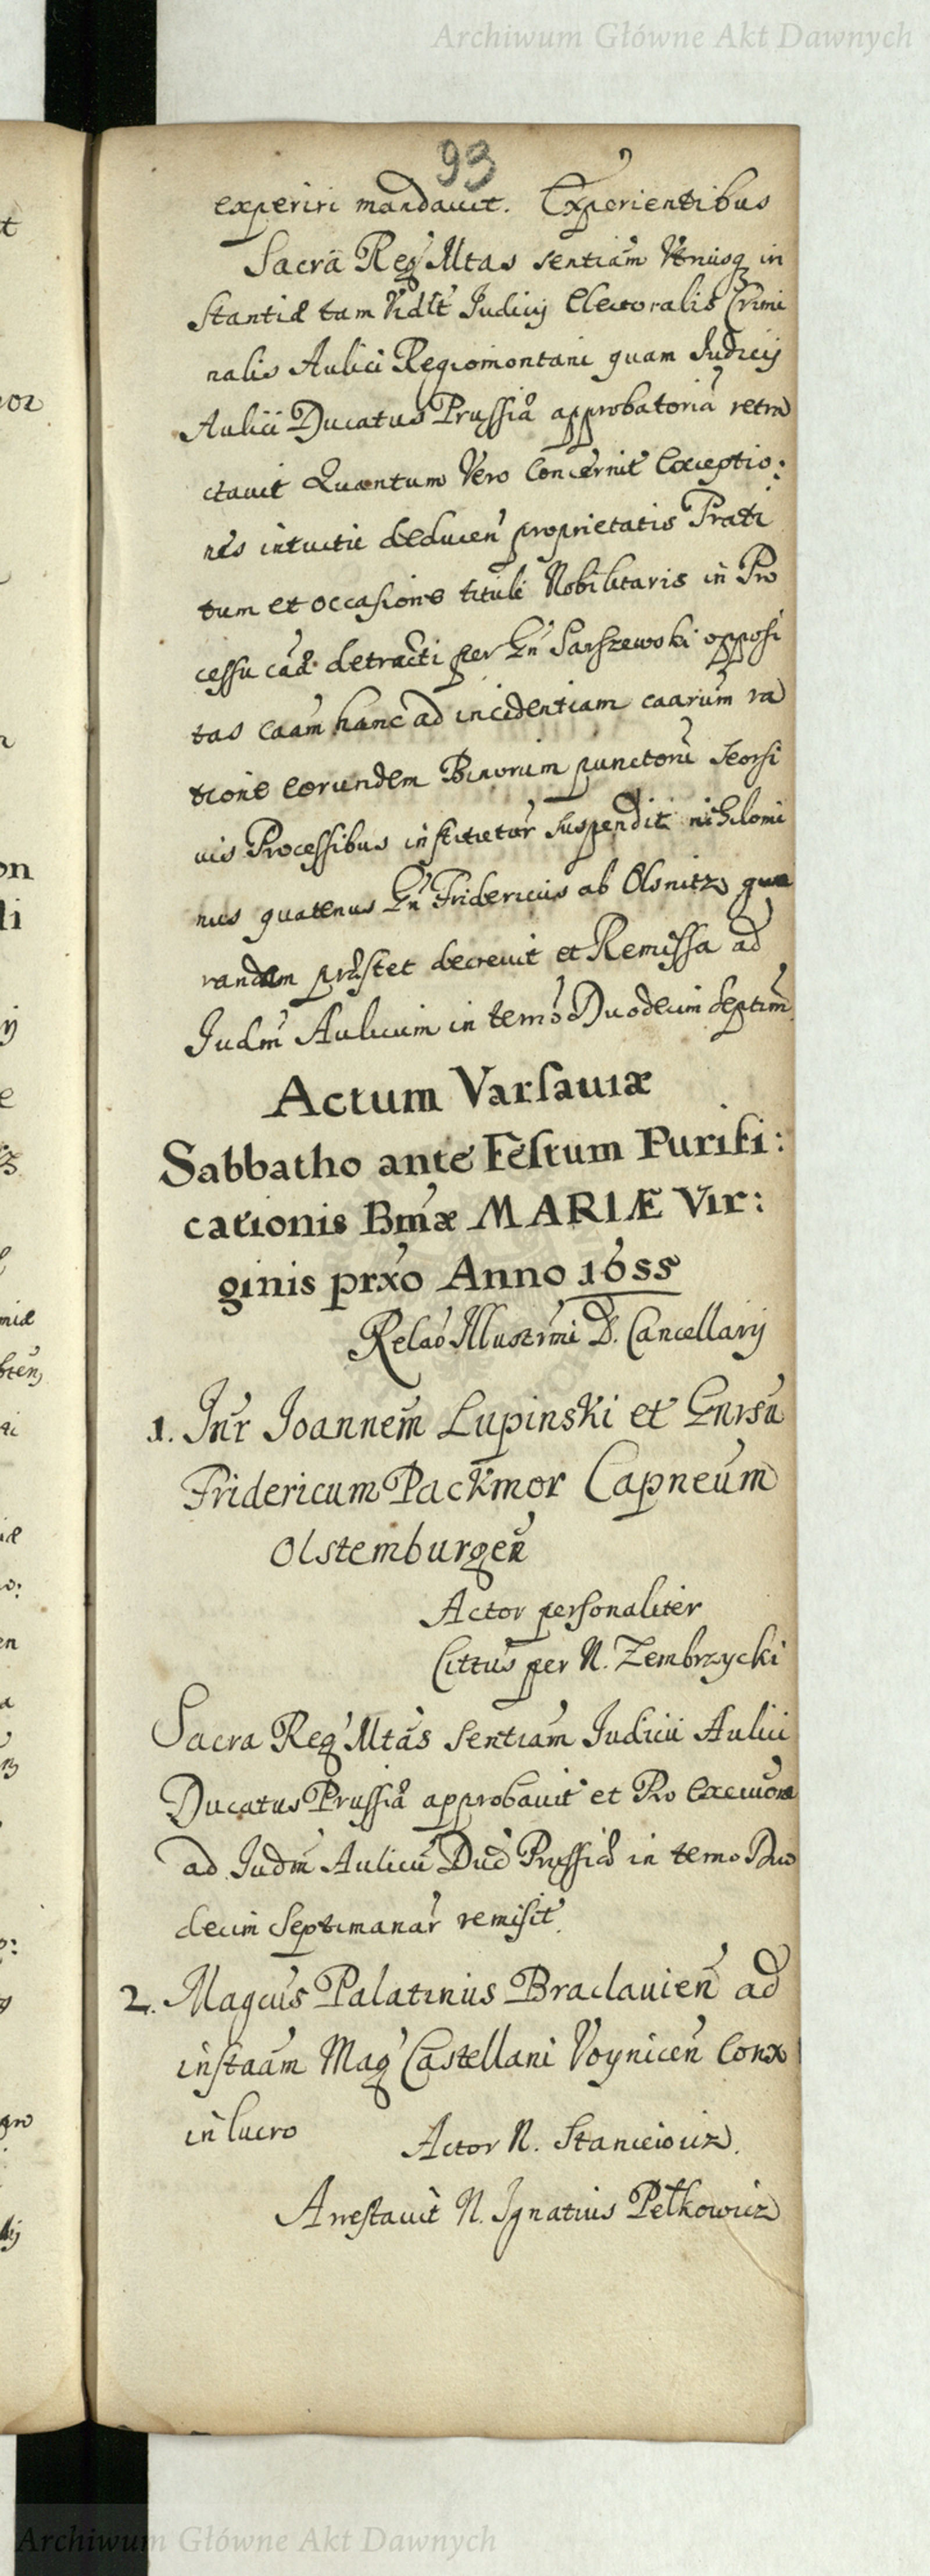 Archiwum Główne Akt Dawnych
93
experiri mandavit. Experientibus
Sacra Reg Mtas sentiam Vtriusq in
stantiæ tam Vidlt Iudicij Electoralis Crimi
nalis Aulici Regiomontani quam Iudicij
Aulici Ducatus Prussiæ approbatoriã retra
ctavit Quantum Vero Concernit Exceptio:
nes intuitu deducen proprietatis Prati
tum et occasione tituli Nobilitaris in Pro
cessu cãæ detracti per Gn Sarszewski opposi
tas caam hanc ad incidentiam caarum ra
tione eorundem Binorum punctorũ seorsi
uis Processibus instituetur suspendit nihilomi
nus quatenus Gn Fridericus ab Olsnitz gua
randam præstet decrevit et Remissa ad
Iudm Aulicum in temo Duodecim septim
Actum Varsauiæ
Sabbatho ante Festum Purifi:
cationis Bmæ MARIÆ Vir:
ginis prxo Anno 1655
Relao Illustrmi D. Cancellarij
1. Intr Ioannem Lupinski et Gnrsũ
Fridericum Packmor Capneum
Olstemburgen
Actor personaliter
Cittus per N. Zembrzycki
Sacra Reg Mtas sentiam Iudicii Aulici
Ducatus Prussiæ approbavit et Pro Execuõne
ad Iudm Aulicũ Duc Prussiæ in temo Duo
decim Septimanar remisit
2. Magcus Palatinus Braclauien ad
instaam Mag Castellani Voynicen Conx
in lucro Actor N. Stanceiowicz.
Arrestavit N. Ignatius Petkowicz
t
on
li
ij
e
Archiwum Główne Akt Dawnych